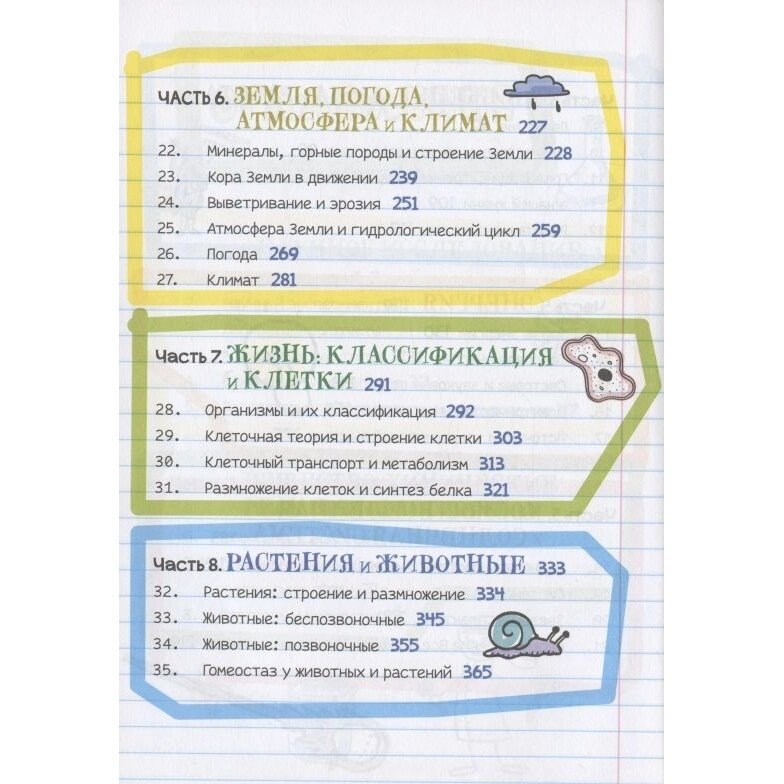 ЧАСТЬ 6. ЗЕМЛЯ, ПОГОДА,
АТМОСФЕРА и КЛИМАТ 227
22. Минералы, горные породы и строение Земли 228
23. Кора Земли в движении 239
24. Выветривание и эрозия 251
25. Атмосфера Земли и гидрологический цикл 259
26. Погода 269
27. Климат 281
Часть 7. ЖИЗНЬ: КЛАССИФИКАЦИЯ
и КЛЕТКИ 291
28. Организмы и их классификация 292
29. Клеточная теория и строение клетки 303
30. Клеточный транспорт и метаболизм 313
31. Размножение клеток и синтез белка 321
Часть 8. РАСТЕНИЯ и ЖИВОТНЫЕ 333
32. Растения: строение и размножение 334
33. Животные: беспозвоночные 345
34. Животные: позвоночные 355
35. Гомеостаз у животных и растений 365